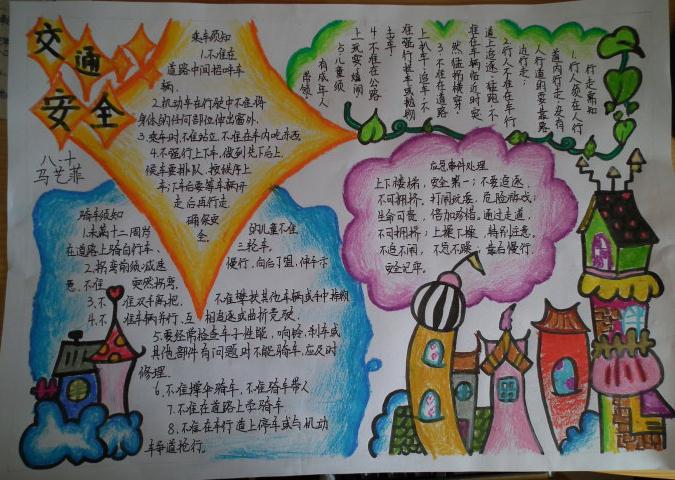 交通
安全
八、十
马艺菲
乘车须知
1.不准在
道路中间招呼车
辆.
2.机动车在行驶中不准将
身体的任何部位伸出窗外.
3.乘车时,不准站立.不准在车内吃东西.
4.不强行上下车,做到先下后上,
候车要排队,按秩序上
车;下车后要等车辆开
走后再行走.
确保安
全.
行走需知
1.行人须在人行
道内行走,没有
人行道的要靠路
边行走;
2.行人不准在车行
道上追逐、猛跑,不
准在车辆临近时突
然猛拐横穿;
3.不准在道路
上扒车、追车,不
准强行拦车或抛物
击车;
4.不准在公路
上玩耍嬉闹
5.儿童须
有成年人
带领.
应急事件处理
上下楼梯,安全第一;不要追逐,
不可拥挤,打闹玩耍,危险游戏;
生命可贵,倍加珍惜。通过走道,
不可拥挤;上操下操,特别注意。
不追不闹,不急不躁;最后慢行,
安全记牢。
骑车须知
1.未满十二周岁
在道路上骑自行车、
三轮车。
2.拐弯前须减速
慢行,向后了望,伸手示
意,不准突然拐弯.
3.不准双手离把,不准攀扶其他车辆或手中持物
4.不准车辆并行、互相追逐或曲折竞驶.
5.要经常检查车子性能,响铃,刹车或
其他部件有问题时不能骑车,应及时
修理.
6.不准撑伞骑车,不准骑车带人
7.不准在道路上学骑车
8.不准在车行道上停车或与机动
车争道抢行。